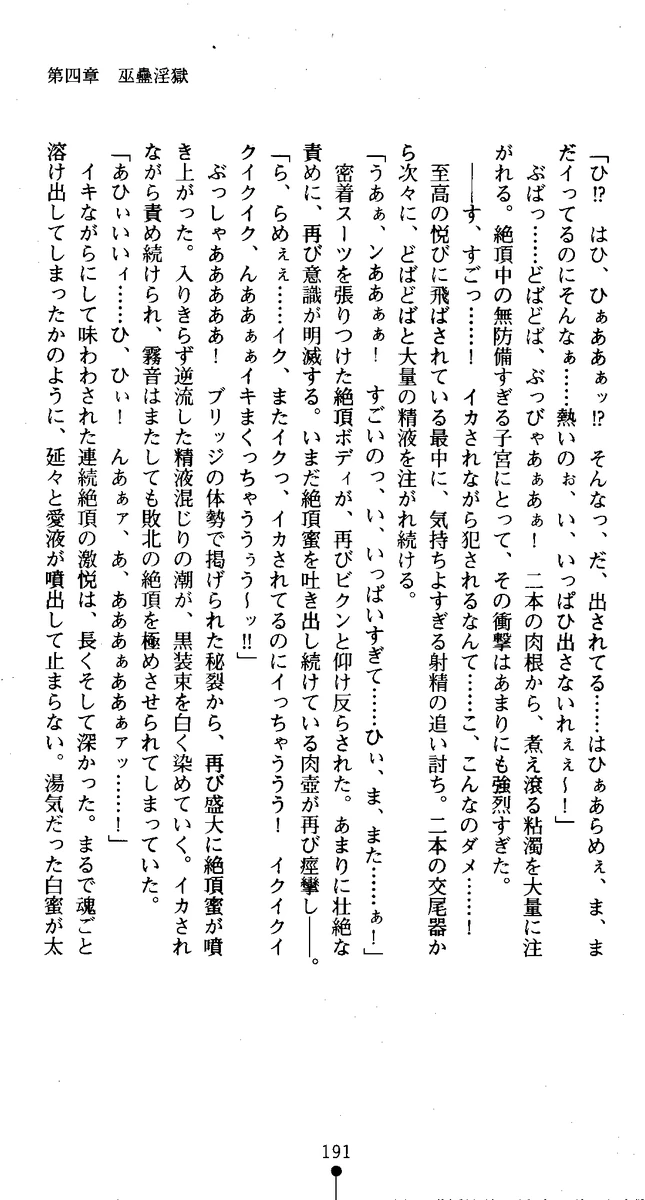 第四章　巫蠱淫獄
「ひ!?　はひ、ひぁああぁッ!?　そんなっ、だ、出されてる……はひぁあらめぇ、ま、ま
だイってるのにそんなぁ……熱いのぉ、い、いっぱひ出さないれぇぇ～！」
ぶばっ……どばどば、ぶっびゃあぁあぁ！　二本の肉根から、煮え滾る粘濁を大量に注
がれる。絶頂中の無防備すぎる子宮にとって、その衝撃はあまりにも強烈すぎた。
――す、すごっ……！　イカされながら犯されるなんて……こ、こんなのダメ……！
至高の悦びに飛ばされている最中に、気持ちよすぎる射精の追い討ち。二本の交尾器か
ら次々に、どばどばと大量の精液を注がれ続ける。
「うあぁ、ンああぁぁ！　すごいのっ、い、いっぱいすぎて……ひぃ、ま、また……ぁ！」
密着スーツを張りつけた絶頂ボディが、再びビクンと仰け反らされた。あまりに壮絶な
責めに、再び意識が明滅する。いまだ絶頂蜜を吐き出し続けている肉壺が再び痙攣し――。
「ら、らめぇぇ……イク、またイクっ、イカされてるのにイっちゃううう！　イクイクイ
クイクイク、んああぁぁイキまくっちゃううぅう～ッ!!」
ぶっしゃあああああ！　ブリッジの体勢で掲げられた秘裂から、再び盛大に絶頂蜜が噴
き上がった。入りきらず逆流した精液混じりの潮が、黒装束を白く染めていく。イカされ
ながら責め続けられ、霧音はまたしても敗北の絶頂を極めさせられてしまっていた。
「あひぃいいィ……ひ、ひぃ！　んあぁァ、あ、あああぁああぁァッ……！」
イキながらにして味わわされた連続絶頂の激悦は、長くそして深かった。まるで魂ごと
溶け出してしまったかのように、延々と愛液が噴出して止まらない。湯気だった白蜜が太
191